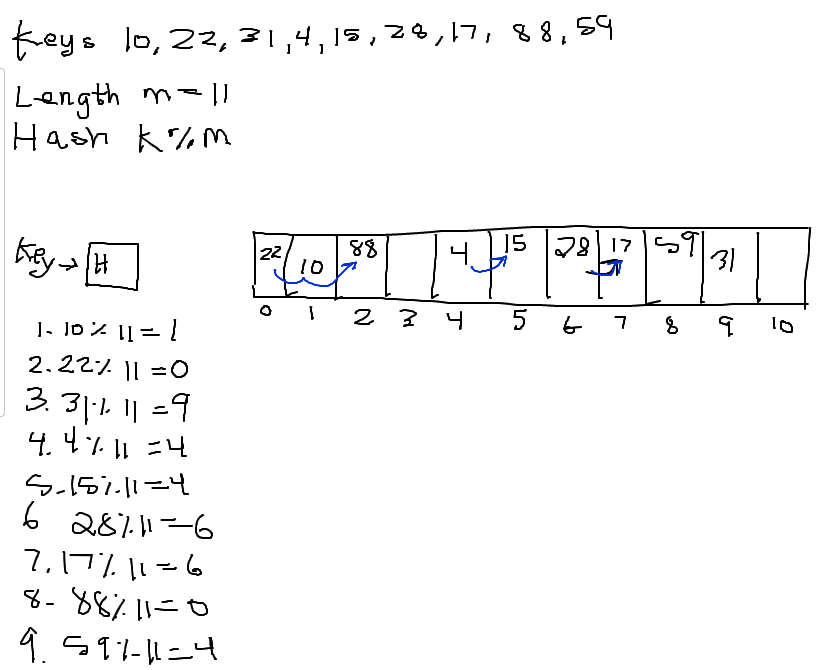 Keys 10, 22, 31, 4, 15, 28, 17, 88, 59
Length m = 11
Hash K % m
Key → H
22 10 88 4 15 28 17 59 31
0 1 2 3 4 5 6 7 8 9 10
1. 10 % 11 = 1
2. 22 % 11 = 0
3. 31 % 11 = 9
4. 4 % 11 = 4
5. 15 % 11 = 4
6 28 % 11 = 6
7. 17 % 11 = 6
8- 88 % 11 = 0
9. 59 % 11 = 4